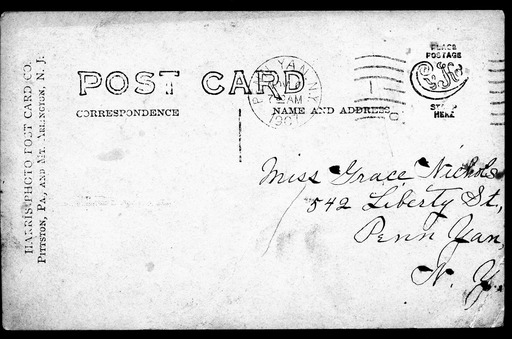 HARRIS PHOTO POST CARD CO.
PITTSTON, PA., AND MT. ARLINGTON, N. J.
POST CARD
CORRESPONDENCE
NAME AND ADDRESS
PENN YAN N.Y.
AM
PLACE
POSTAGE
HERE
Miss Grace Nichols
542 Liberty St.,
Penn Yan,
N. Y.